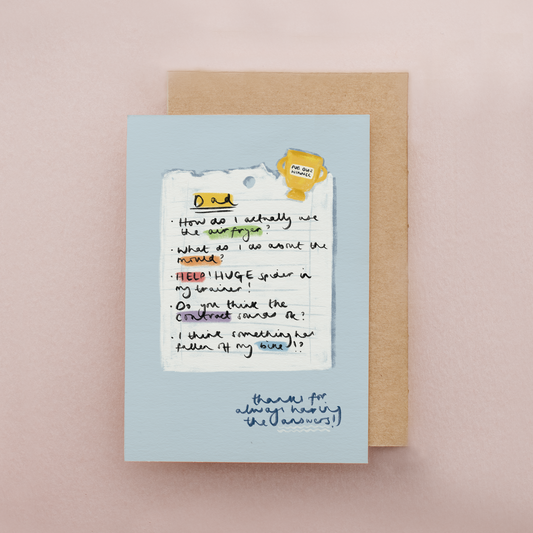 PUB QUIZ
WINNER
Dad
· How do I actually use
the airfryer?
· What do I do about the
mould?
· HELP! HUGE spider in
my trainer!
· Do you think the
contract sounds ok?
· I think something has
fallen off my bike!?
thanks for
always having
the answers!